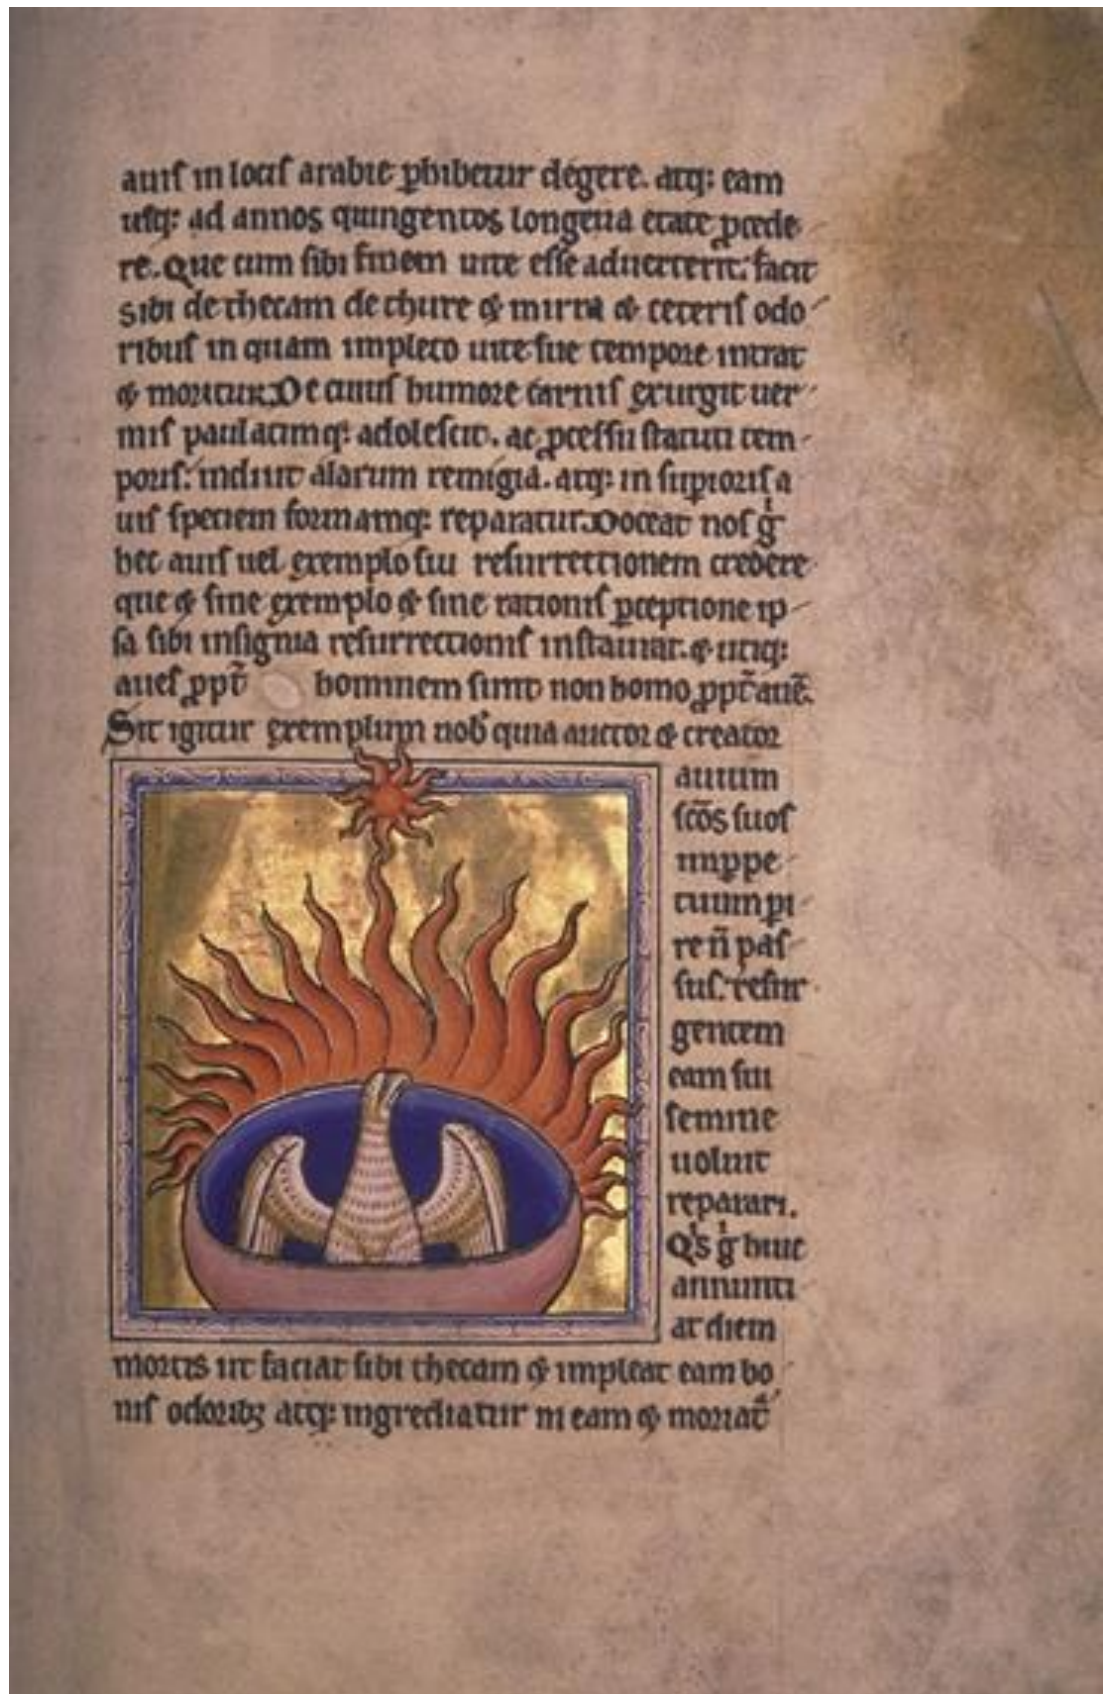 auis in locis arabie phibetur degere. atq: eam
usq: ad annos quingentos longeua etate pcede
re. Que cum sibi finem uite esse aduerterit: facit
sibi de thecam de thure & mirra & ceteris odo
ribus in quam impleto uite sue tempore intrat
& moritur. De cuius humore carnis exurgit uer
mis paulatimq: adolescit. ac pcessu statuti tem
poris. induit alarum remigia. atq: in supioris a
uis speciem formamq: reparatur. Doceat nos gͥ
hec auis uel exemplo sui resurrectionem credere
que & sine exemplo & sine rationis pceptione ip
sa sibi insignia resurrectionis instaurat. & utiq:
aues ppt̃ hominem sunt non homo ppt̃ auẽ.
Sit igitur exemplum nob quia auctor & creator
auium
scõs suos
inppe
tuum pi
re ñ pas
sus. resur
gentem
eam sui
semine
uoluit
reparari.
Qͥs gͥ huic
annunti
at diem
mortis ut faciat sibi thecam & impleat eam bo
nis odoribꝫ atq: ingrediatur in eam & moriat᷑